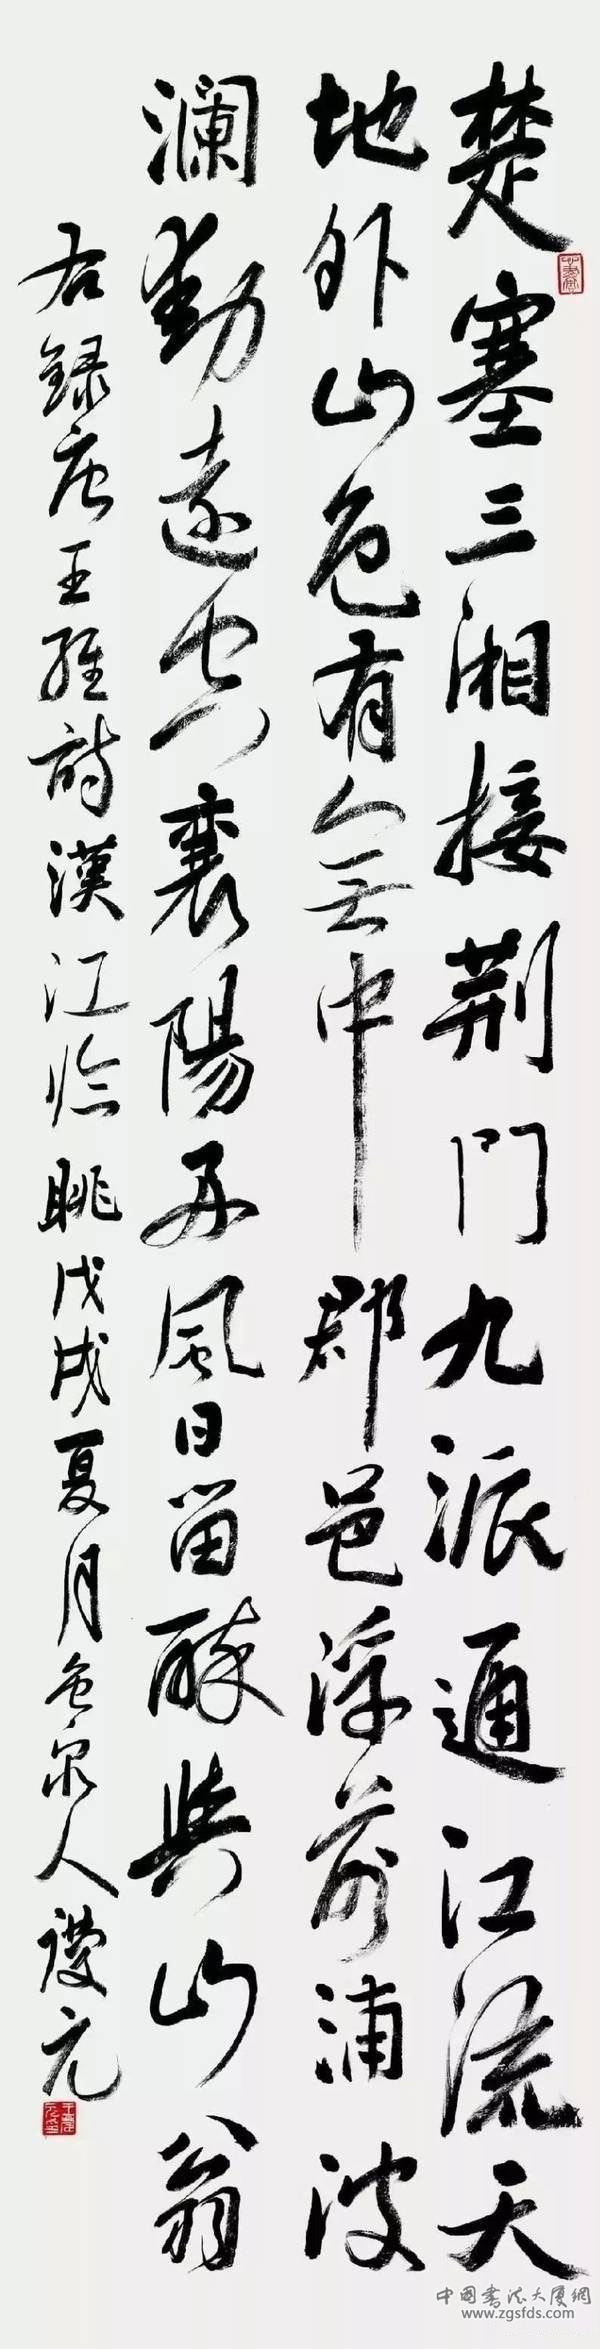 楚塞三湘接荆門九派通江流天
地外山色有無中郡邑浮前浦波
瀾動遠空襄陽好風日留醉與山翁
右録唐王維詩漢江臨眺戊戌夏月泉人元
中国書法大廈網
www.zgsfds.com